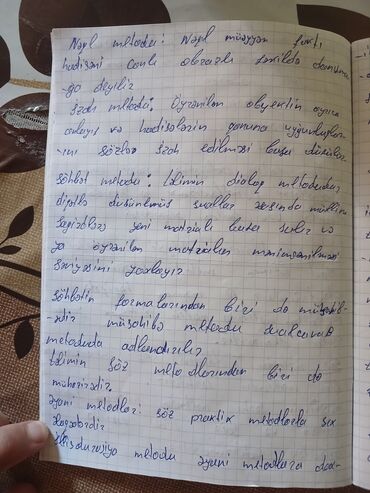 Nəql metodu: Nəql müəyyən faktı
hadisəni canlı obrazlı şəkildə danışma-
-ğa deyilir
Şərh metodu: Öyrənilən obyektin ayrıca
anlayış və hadisələrin qanuna uyğunluqlar-
-ını sözlə şərh edilməsi başa düşülür
Söhbət metodu: təlimin dialoq metodudur
diqqətlə düşünülmüş suallar əsasında müəllim
şagirdlərə yeni materialı başa salır və
ya öyrənilən materialın mənimsənilməsi
səviyyəsini yoxlayır
Söhbətin formalarından biri də müsahib-
-ədir müsahibə metodu
metoduda adlandırılır
təlimin söz metodlarından biri də
mühazirədir.
əyani metodlar: söz praktik metodlarla sıx
əlaqəlidir
metodu əyani metodlara